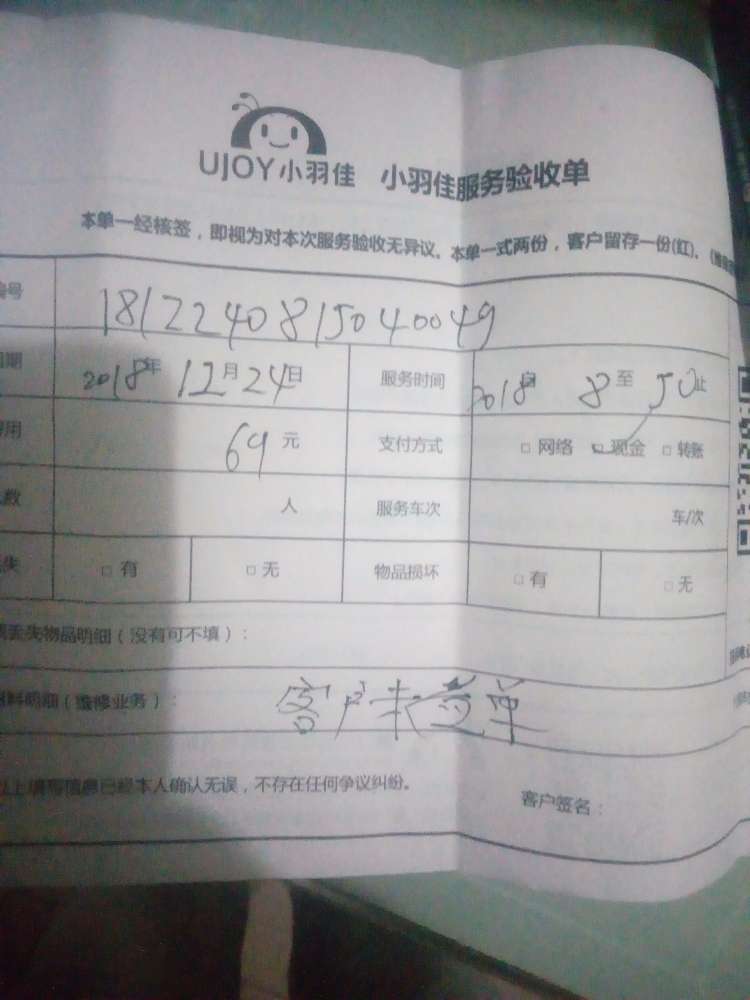 UJOY小羽佳 小羽佳服务验收单
本单一经核签，即视为对本次服务验收无异议。本单一式两份，客户留存一份(红)。
号 1812240815040049
期 2018年 12月 24日 服务时间 2018自 8 至 50止
用 69 元 支付方式 □ 网络 □ 现金 □ 转账
数 人 服务车次 车/次
失 □ 有 □ 无 物品损坏 □ 有 □ 无
丢失物品明细（没有可不填）：
料明细（维修业务）： 客户未签单
以上填写信息已经本人确认无误，不存在任何争议纠纷。
客户签名：